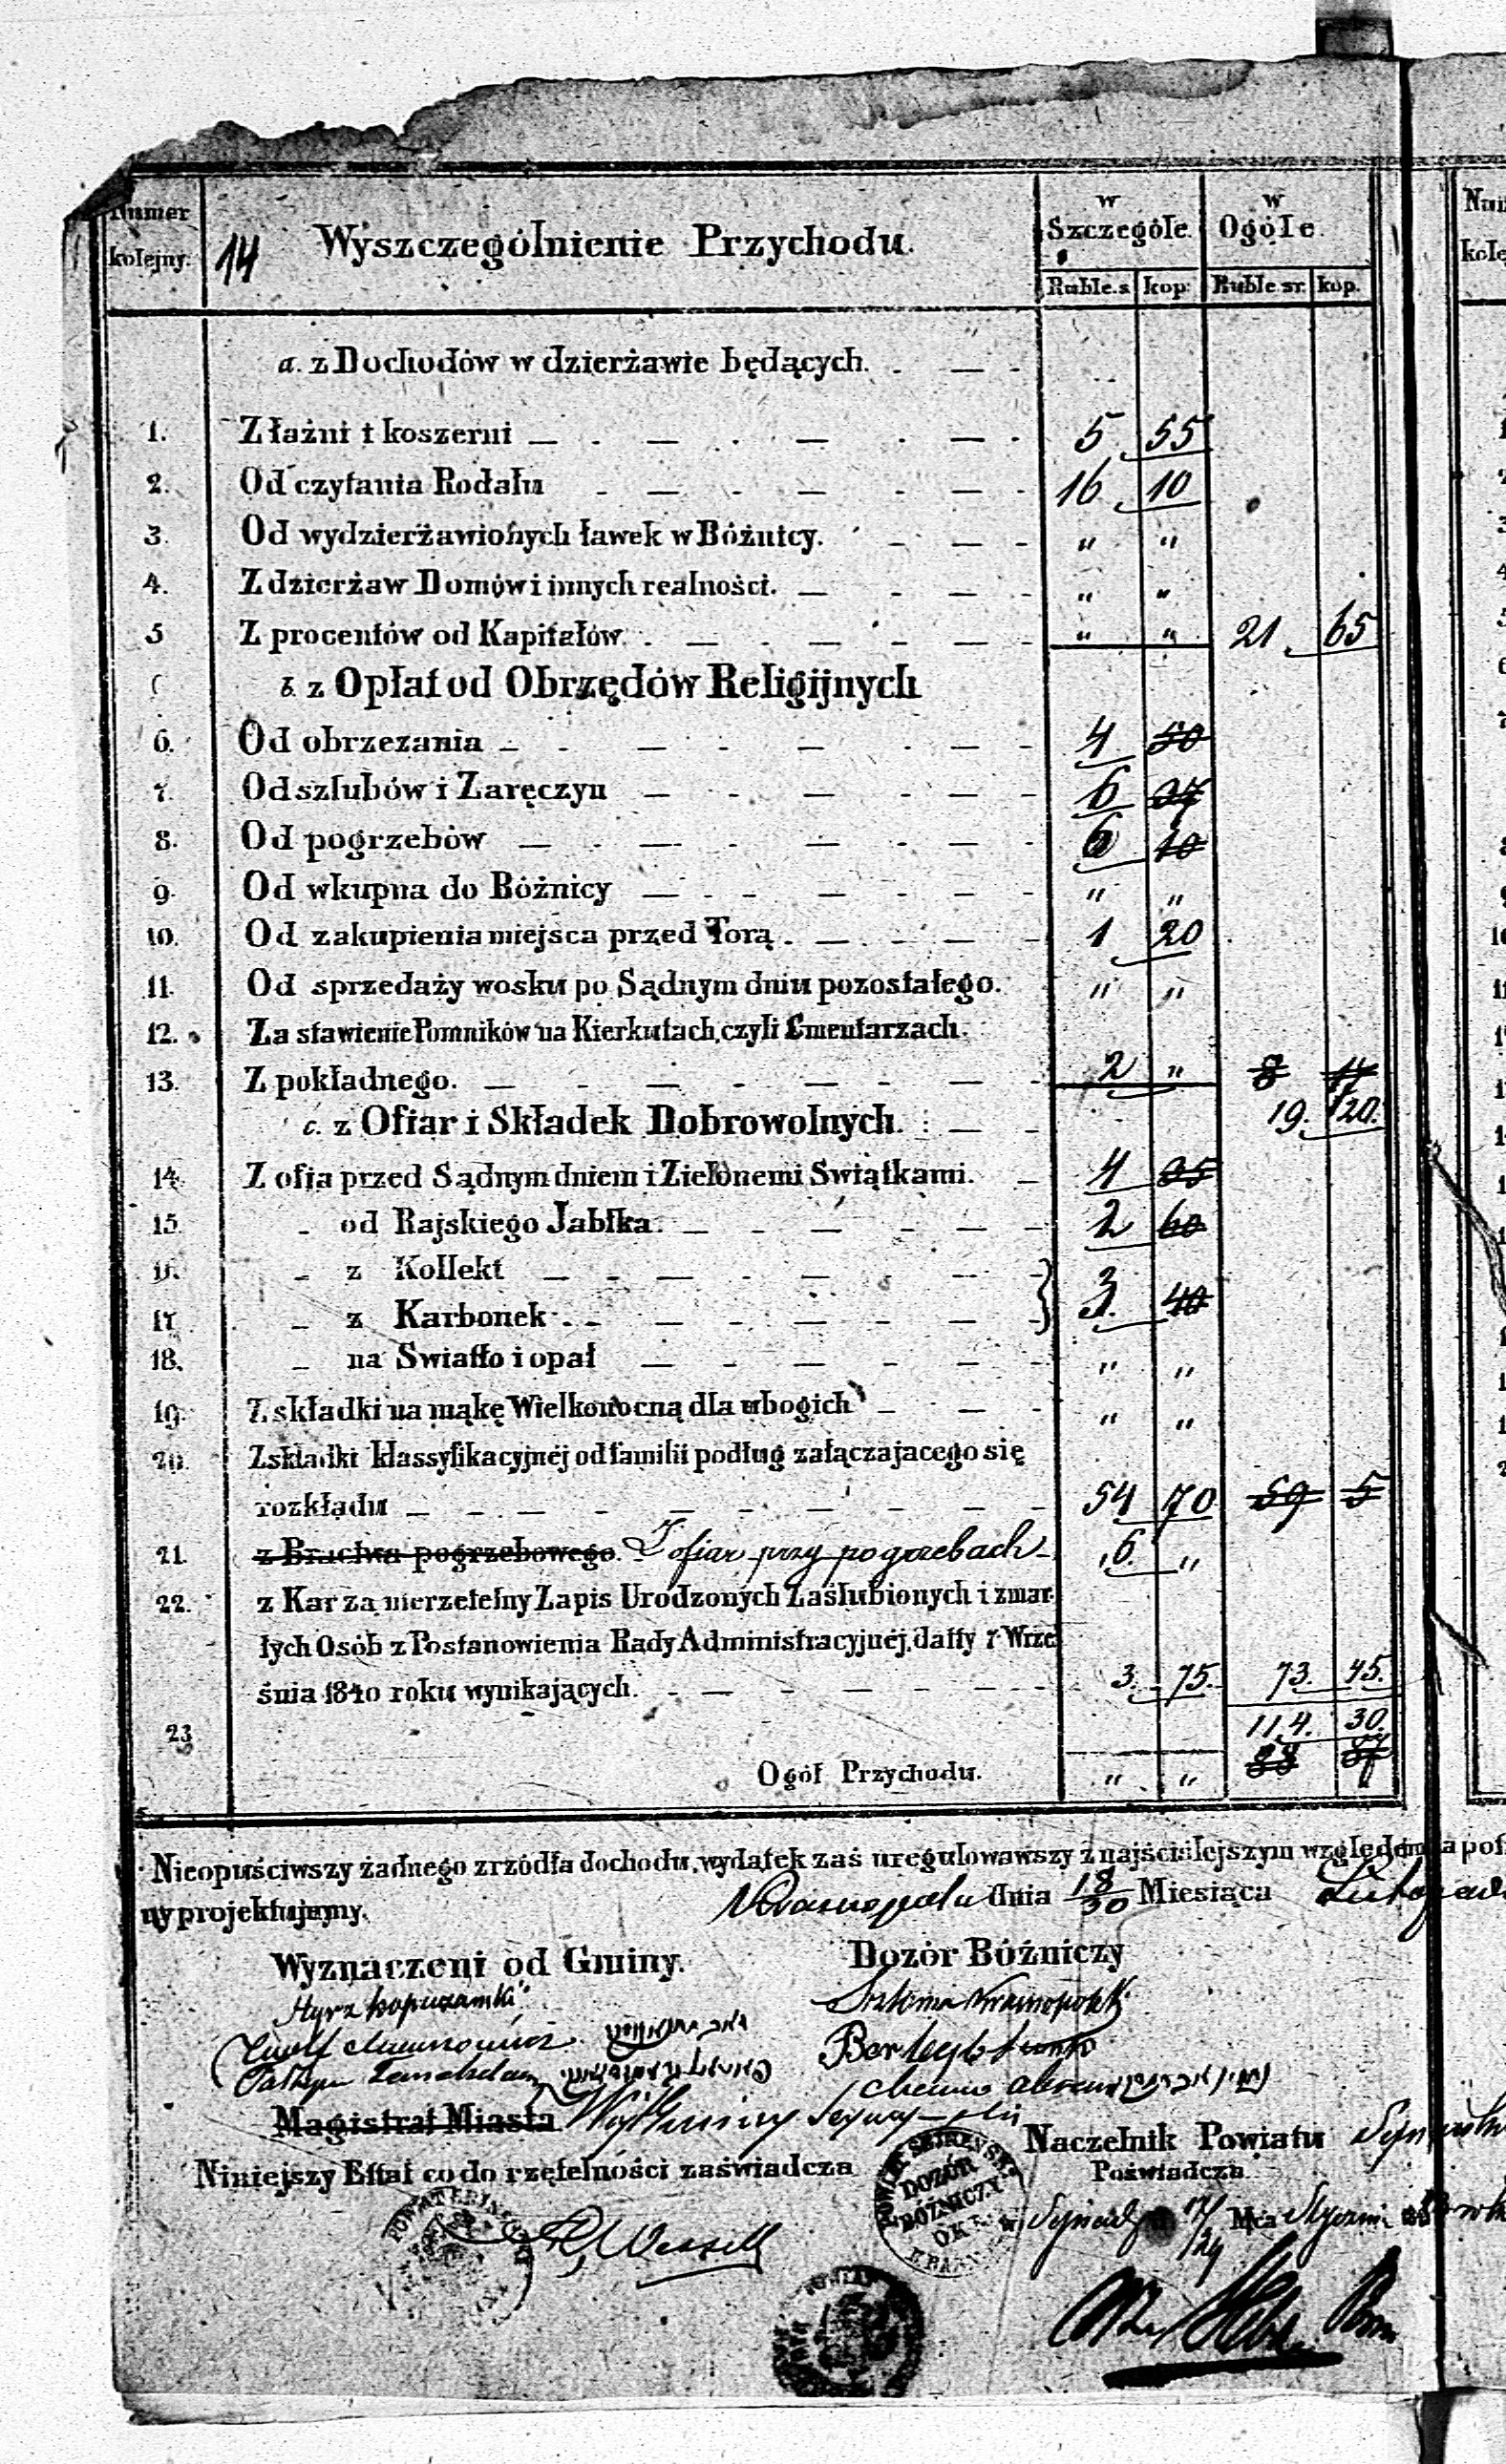 Numer kolejny. 14 Wyszczególnienie Przychodu. w Szczególe. w Ogóle.
Ruble.s kop: Ruble sr. kop.
a. z Dochodów w dzierżawie będących.
1. Z łaźni i koszerni 5 55
2. Od czytania Rodału 16 10
3. Od wydzierżawionych ławek w Bóżnicy. " "
4. Z dzierżaw Domów i innych realności. " "
5 Z procentów od Kapitałów. " " 21 65
b. z Opłat od Obrzędów Religijnych
6. Od obrzezania 4 50
7. Od szlubów i Zaręczyn 6
8. Od pogrzebów 6 10
9. Od wkupna do Bóżnicy " "
10. Od zakupienia miejsca przed Torą. 1 20
11. Od sprzedaży wosku po Sądnym dniu pozostałego. " "
12. Za stawienie Pomników na Kierkutach, czyli Cmentarzach.
13. Z pokładnego. 2 " 8
c. z Ofiar i Składek Dobrowolnych. 19. 20.
14. Z ofia przed Sądnym dniem i Zielonemi Swiątkami. 4
15. " od Rajskiego Jabłka. 2 60
16. " z Kollekt
17 " z Karbonek 3. 40
18. " na Swiatło i opał " "
19. Z składki na mąkę Wielkonocną dla ubogich " "
20. Z składki klassyfikacyjnéj od familii podług załączajacego się
rozkładu 54 70 59 5
21. z Bractwa pogrzebowego. Z ofiar przy pogrzebach 6. "
22. z Kar za nierzetelny Zapis Urodzonych Zaślubionych i zmar-
łych Osób z Postanowienia Rady Administracyjnéj, datty 7 Wrze
śnia 1840 roku wynikających. 3. 75. 73. 45.
23 114. 30.
Ogół Przychodu. " "
Nieopuściwszy żadnego zrzódła dochodu, wydatek zaś uregulowawszy z najściślejszym względem
ny projektujemy. Krasnopolu dnia 18/30 Miesiąca
Wyznaczeni od Gminy. Dozór Bóżniczy
Magistrat Miasta Wójt Gminy
Naczelnik Powiatu
Niniejszy Ettat co do rzetelności zaświadcza
Poświadcza
DOZÓR
BÓŻNICZY